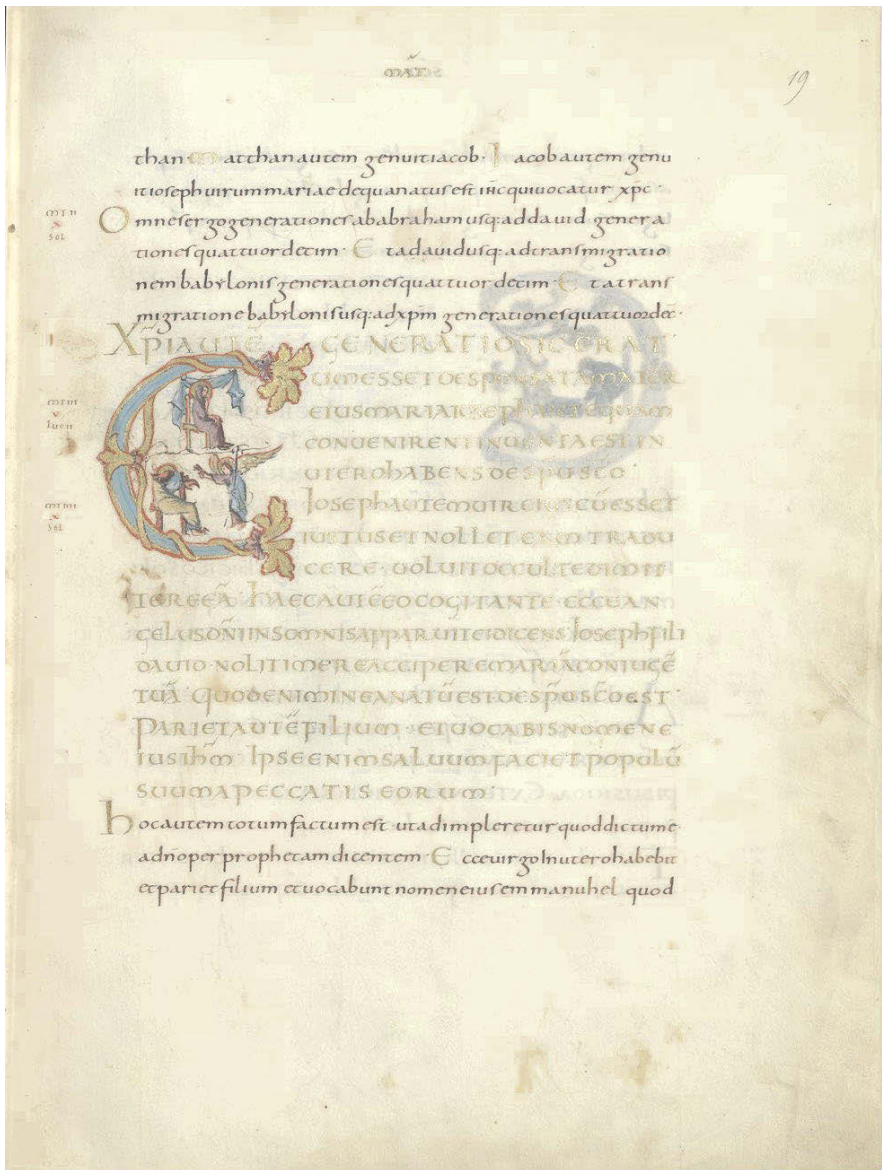 MAT
19
than· Matthan autem genuit iacob· Iacob autem genu
it ioseph uirum mariae de qua natus est ihc qui uocatur xpc·
Omnes ergo generationes ab abraham usq: ad dauid genera
tiones quattuordecim· Et a dauid usq: ad transmigratio
nem babylonis generationes quattuordecim· Et a trans
migratione babylonis usq: ad xpm generationes quattuordec·
XPI AUTE GENERATIO SIC ERAT
CUM ESSET DESPONSATA MATER
EIUS MARIA IOSEPH ANTEQUAM
CONVENIRENT INVENTA EST IN
UTERO HABENS DE SPU SCO
Ioseph AUTEM VIR EIUS CU ESSET
IUSTUS ET NOLLET EAM TRADU
CERE· VOLUIT OCCULTE DIMIT
TERE EA· HAEC AUTE EO COGITANTE ECCE AN
GELUS DNI IN SOMNIS APPARUIT EI DICENS Ioseph FILI
DAUID· NOLI TIMERE ACCIPERE MARIA CONIUGE
TUA· QUOD ENIM IN EA NATU EST DE SPU SCO EST·
PARIET AUTE FILIUM· ET VOCABIS NOMEN E
IUS IHM· IPSE ENIM SALUUM FACIET POPULU
SUUM A PECCATIS EORUM·
hoc autem totum factum est ut adimpleretur quod dictum e·
a dno per prophetam dicentem· Ecce uirgo In utero habebit
et pariet filium et uocabunt nomen eius emmanuhel quod